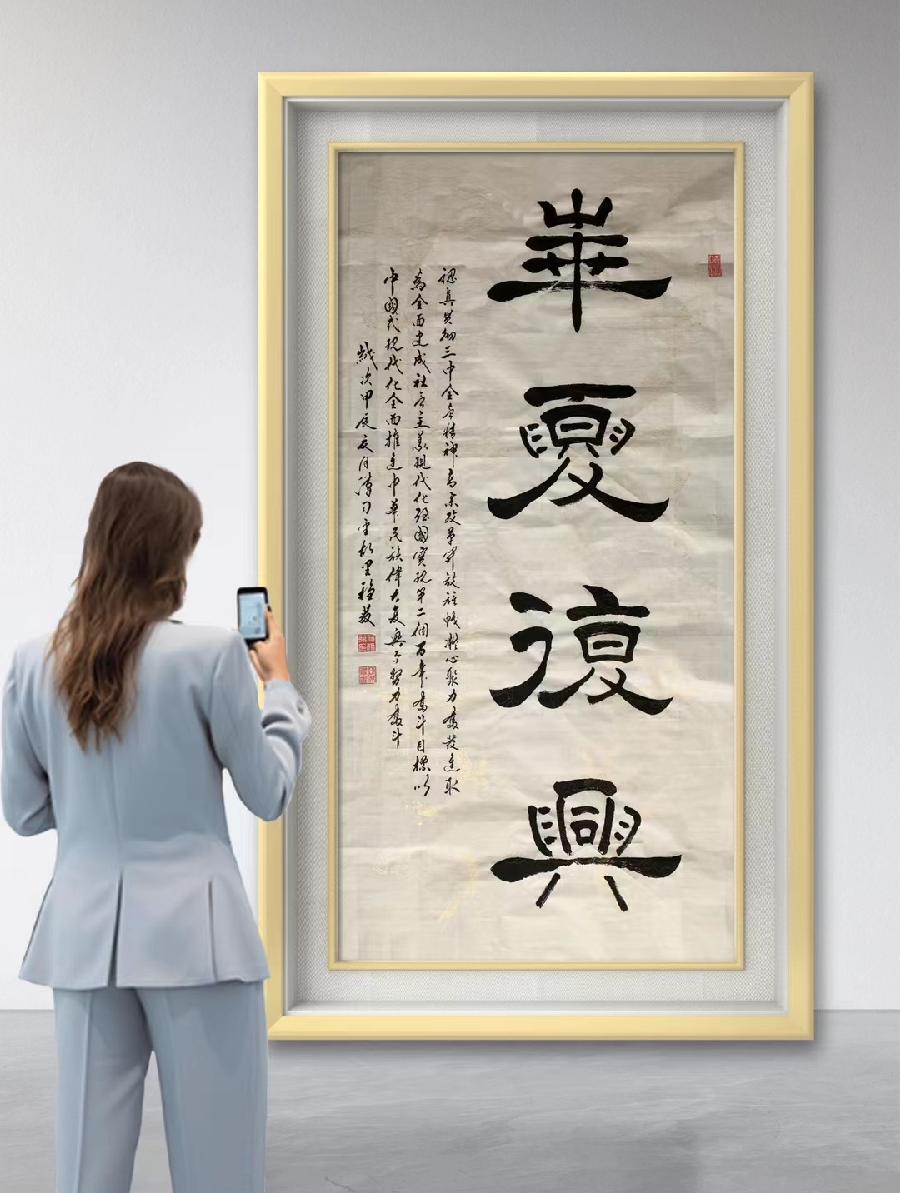 華夏復興
認真贯彻三中全会精神高举改革开放旗帜凝心聚力奮发進取
為全面建成社会主義現代化强國實現第二個百年奮斗目標以
中國式現代化全面推進中華民族偉大复興而努力奮斗
歲次甲辰夏月